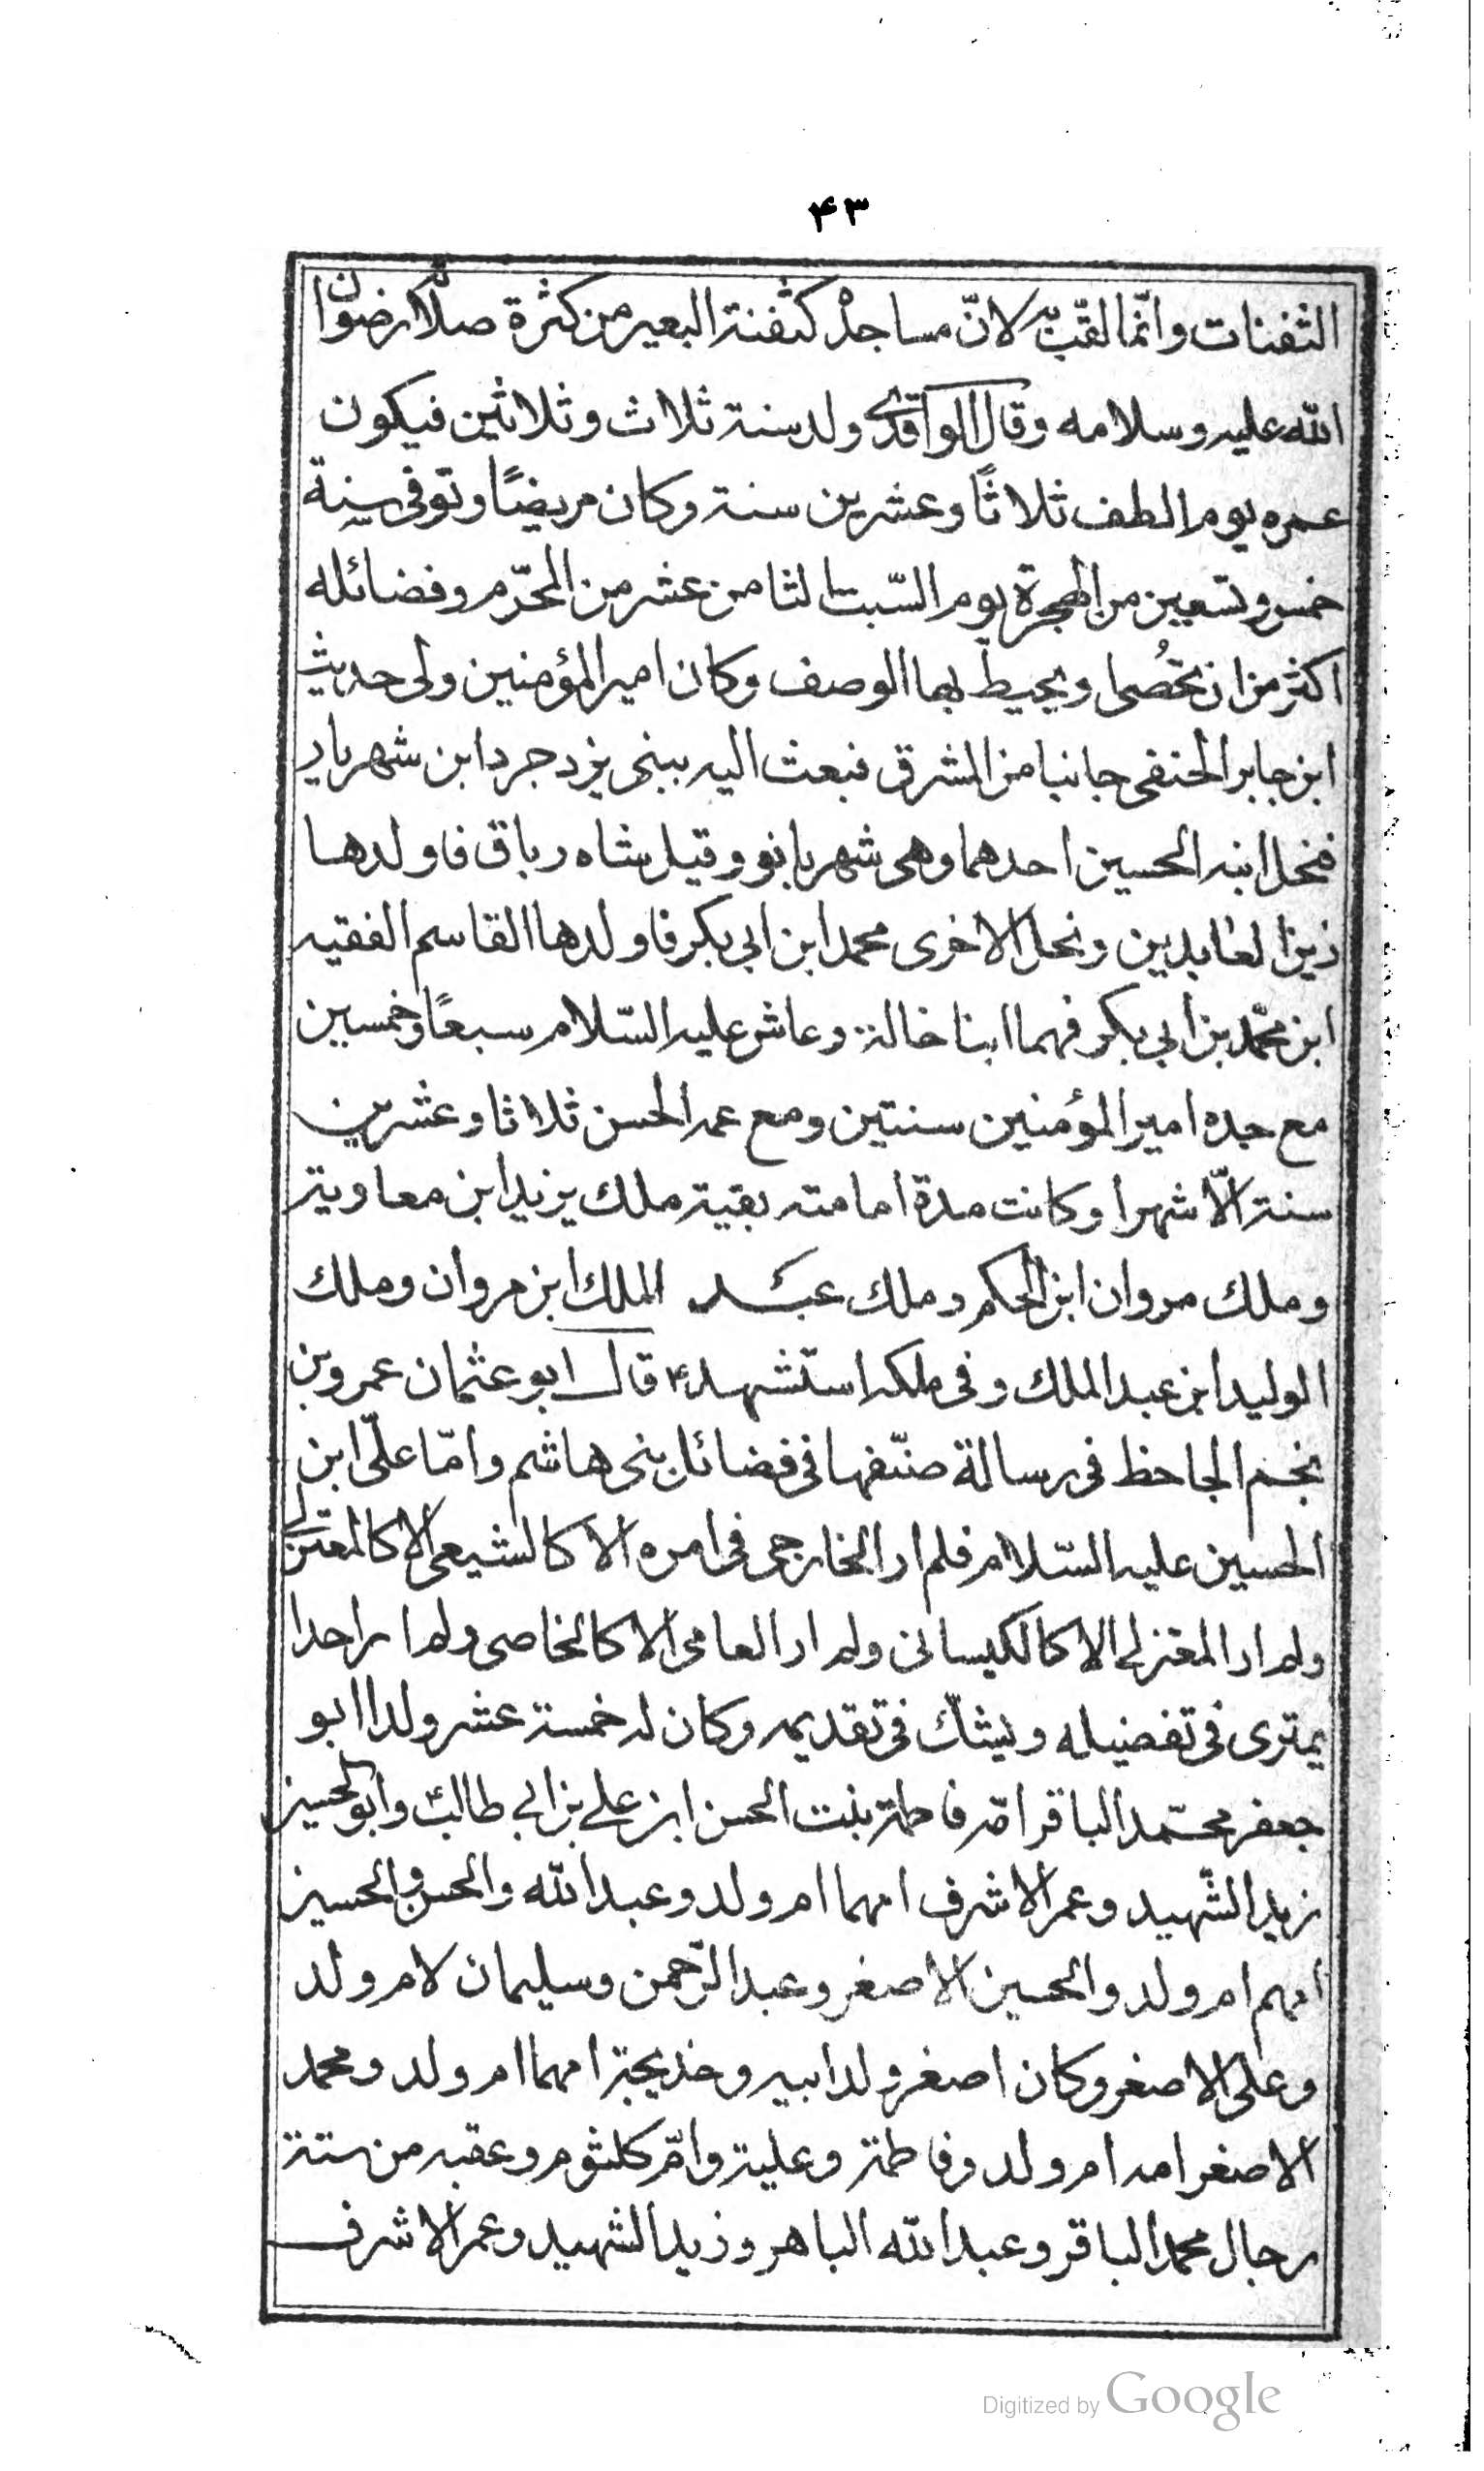 ۴۳
الثفنات وانّما لقّب به لانّ مساجده كثفنة البعير من كثرة صلاته رضوان
الله عليه وسلامه وقال الواقدي ولد سنة ثلاث وثلاثين فيكون
عمره يوم الطف ثلاثًا وعشرين سنة وكان مريضًا وتوفى سنة
خمس وتسعين من الهجرة يوم السّبت الثامن عشر من المحرّم وفضائله
اكثر من ان تحُصى او يحيط بها الوصف وكان امير المؤمنين ولى حديث
ابن جابر الحنفى جانبا من المشرق فبعث اليه ببنى يزدجرد ابن شهريار
فنحل ابنه الحسين احدهما وهى شهربانو وقيل شاه رباق فاولدها
زين العابدين ونحل الاخرى محمد ابن ابى بكر فاولدها القاسم الفقيه
ابن محمّد بن ابى بكر فهما ابنا خالة وعاش عليه السّلام سبعًا وخمسين
مع جده امير المؤمنين سنتين ومع عمه الحسن ثلاثا وعشرين
سنة الّا شهرا وكانت مدة امامته بقية ملك يزيد ابن معاوية
وملك مروان ابن الحكم وملك عبد الملك ابن مروان وملك
الوليد ابن عبد الملك وفى ملكه استشهد ۴ قال ابو عثمان عمرو بن
بحر الجاحظ فى رسالة صنّفها فى فضائل بنى هاشم وامّا علىّ ابن
الحسين عليه السّلام فلم ار الخارجى فى امره الا كالشيعى الا كالمعتزلى
ولم ار المعتزلى الا كالكيسانى ولم ار العامى الا كالخاصى ولم ار احدا
يمترى فى تفضيله ويشكّ فى تقديمه وكان له خمسة عشر ولدا ابو
جعفر محمّد الباقر امّه فاطمة بنت الحسن ابن على بن ابى طالب ۴ وابو الحسين
زيد الشّهيد وعمر الاشرف امهما ام ولد وعبد الله والحسن والحسين
امهم ام ولد والحسين الاصغر وعبد الرّحمن وسليمان لام ولد
وعلى الاصغر وكان اصغر ولد ابيه وخديجة امهما ام ولد ومحمد
الاصغر امه ام ولد وفاطمة وعلية وامّ كلثوم وعقبه من ستة
رجال محمد الباقر وعبد الله الباهر وزيد الشهيد وعمر الاشرف
Digitized by Google